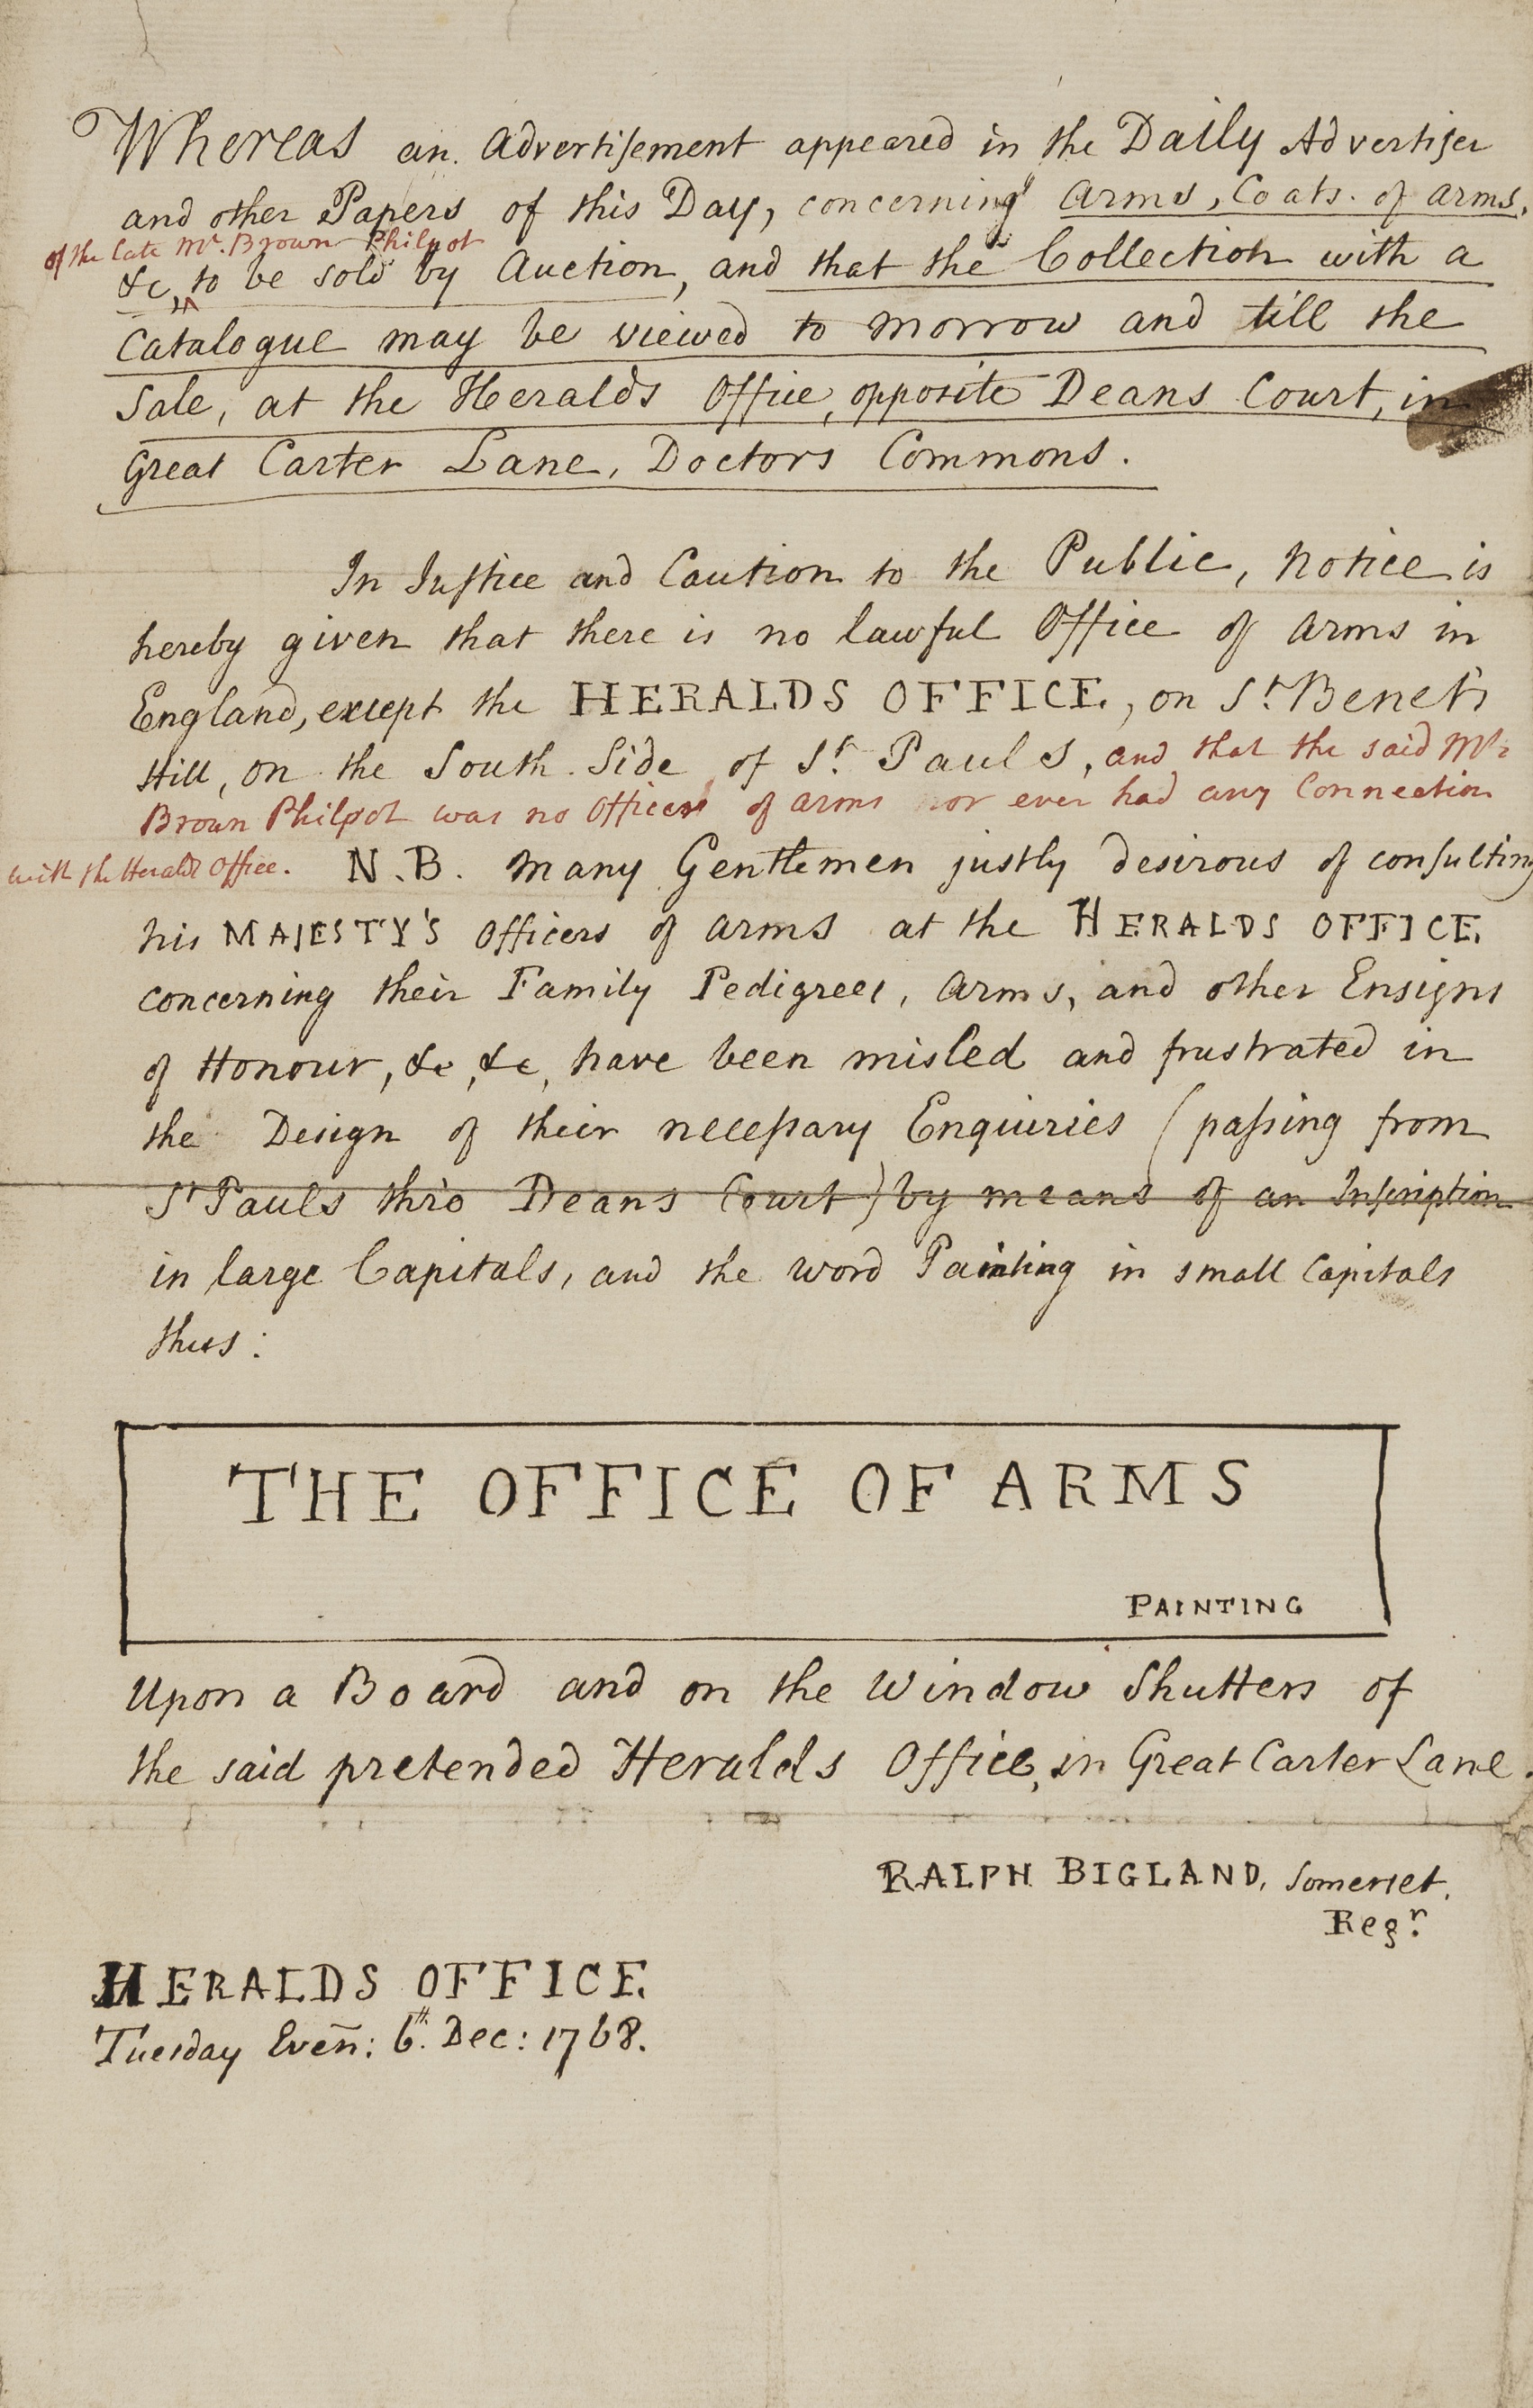 Whereas an Advertisement appeared in the Daily Advertiser
and other Papers of this Day, concerning Arms, Coats of Arms,
of the late Mr. Brown Philpot
&c, to be sold by Auction, and that the Collection with a
Catalogue may be viewed to morrow and till the
Sale, at the Heralds Office, opposite Deans Court, in
Great Carter Lane, Doctors Commons.
In Justice and Caution to the Public, notice is
hereby given that there is no lawful Office of Arms in
England, except the HERALDS OFFICE, on St. Benet's
Hill, on the South Side of St. Pauls, and that the said Mr.
Brown Philpot was no Officer of Arms nor ever had any Connection
with the Heralds Office. N.B. Many Gentlemen justly desirous of consulting
his MAJESTY'S Officers of Arms at the HERALDS OFFICE.
concerning their Family Pedigrees, Arms, and other Ensigns
of Honour, &c, &c, have been misled and frustrated in
the Design of their necessary Enquiries (passing from
St Pauls thro Deans Court) by means of an Inscription
in large Capitals, and the word Painting in small Capitals
thus:
THE OFFICE OF ARMS
PAINTING
Upon a Board and on the Window Shutters of
the said pretended Heralds Office, in Great Carter Lane.
RALPH BIGLAND, Somerset,
Regr.
HERALDS OFFICE.
Tuesday Even̄: 6th. Dec: 1768.